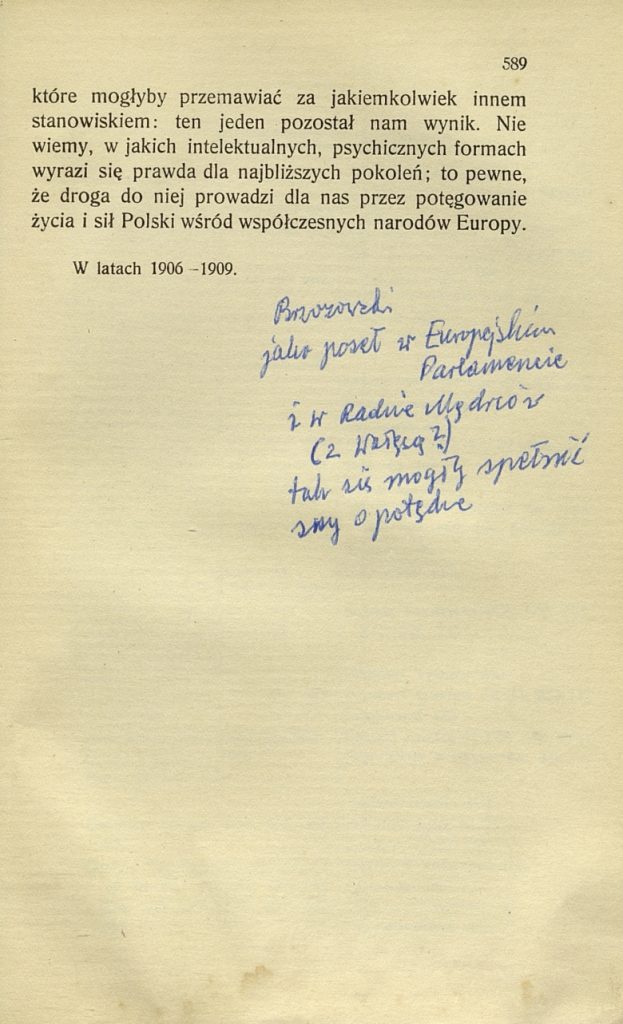 589
które mogłyby przemawiać za jakiemkolwiek innem
stanowiskiem: ten jeden pozostał nam wynik. Nie
wiemy, w jakich intelektualnych, psychicznych formach
wyrazi się prawda dla najbliższych pokoleń; to pewne,
że droga do niej prowadzi dla nas przez potęgowanie
życia i sił Polski wśród współczesnych narodów Europy.
W latach 1906–1909.
Brzozowski
jako poseł w Europejskim
Parlamencie
i w Radzie Mędrców
(z Wałęsą?)
tak się mogły spełnić
sny o potędze